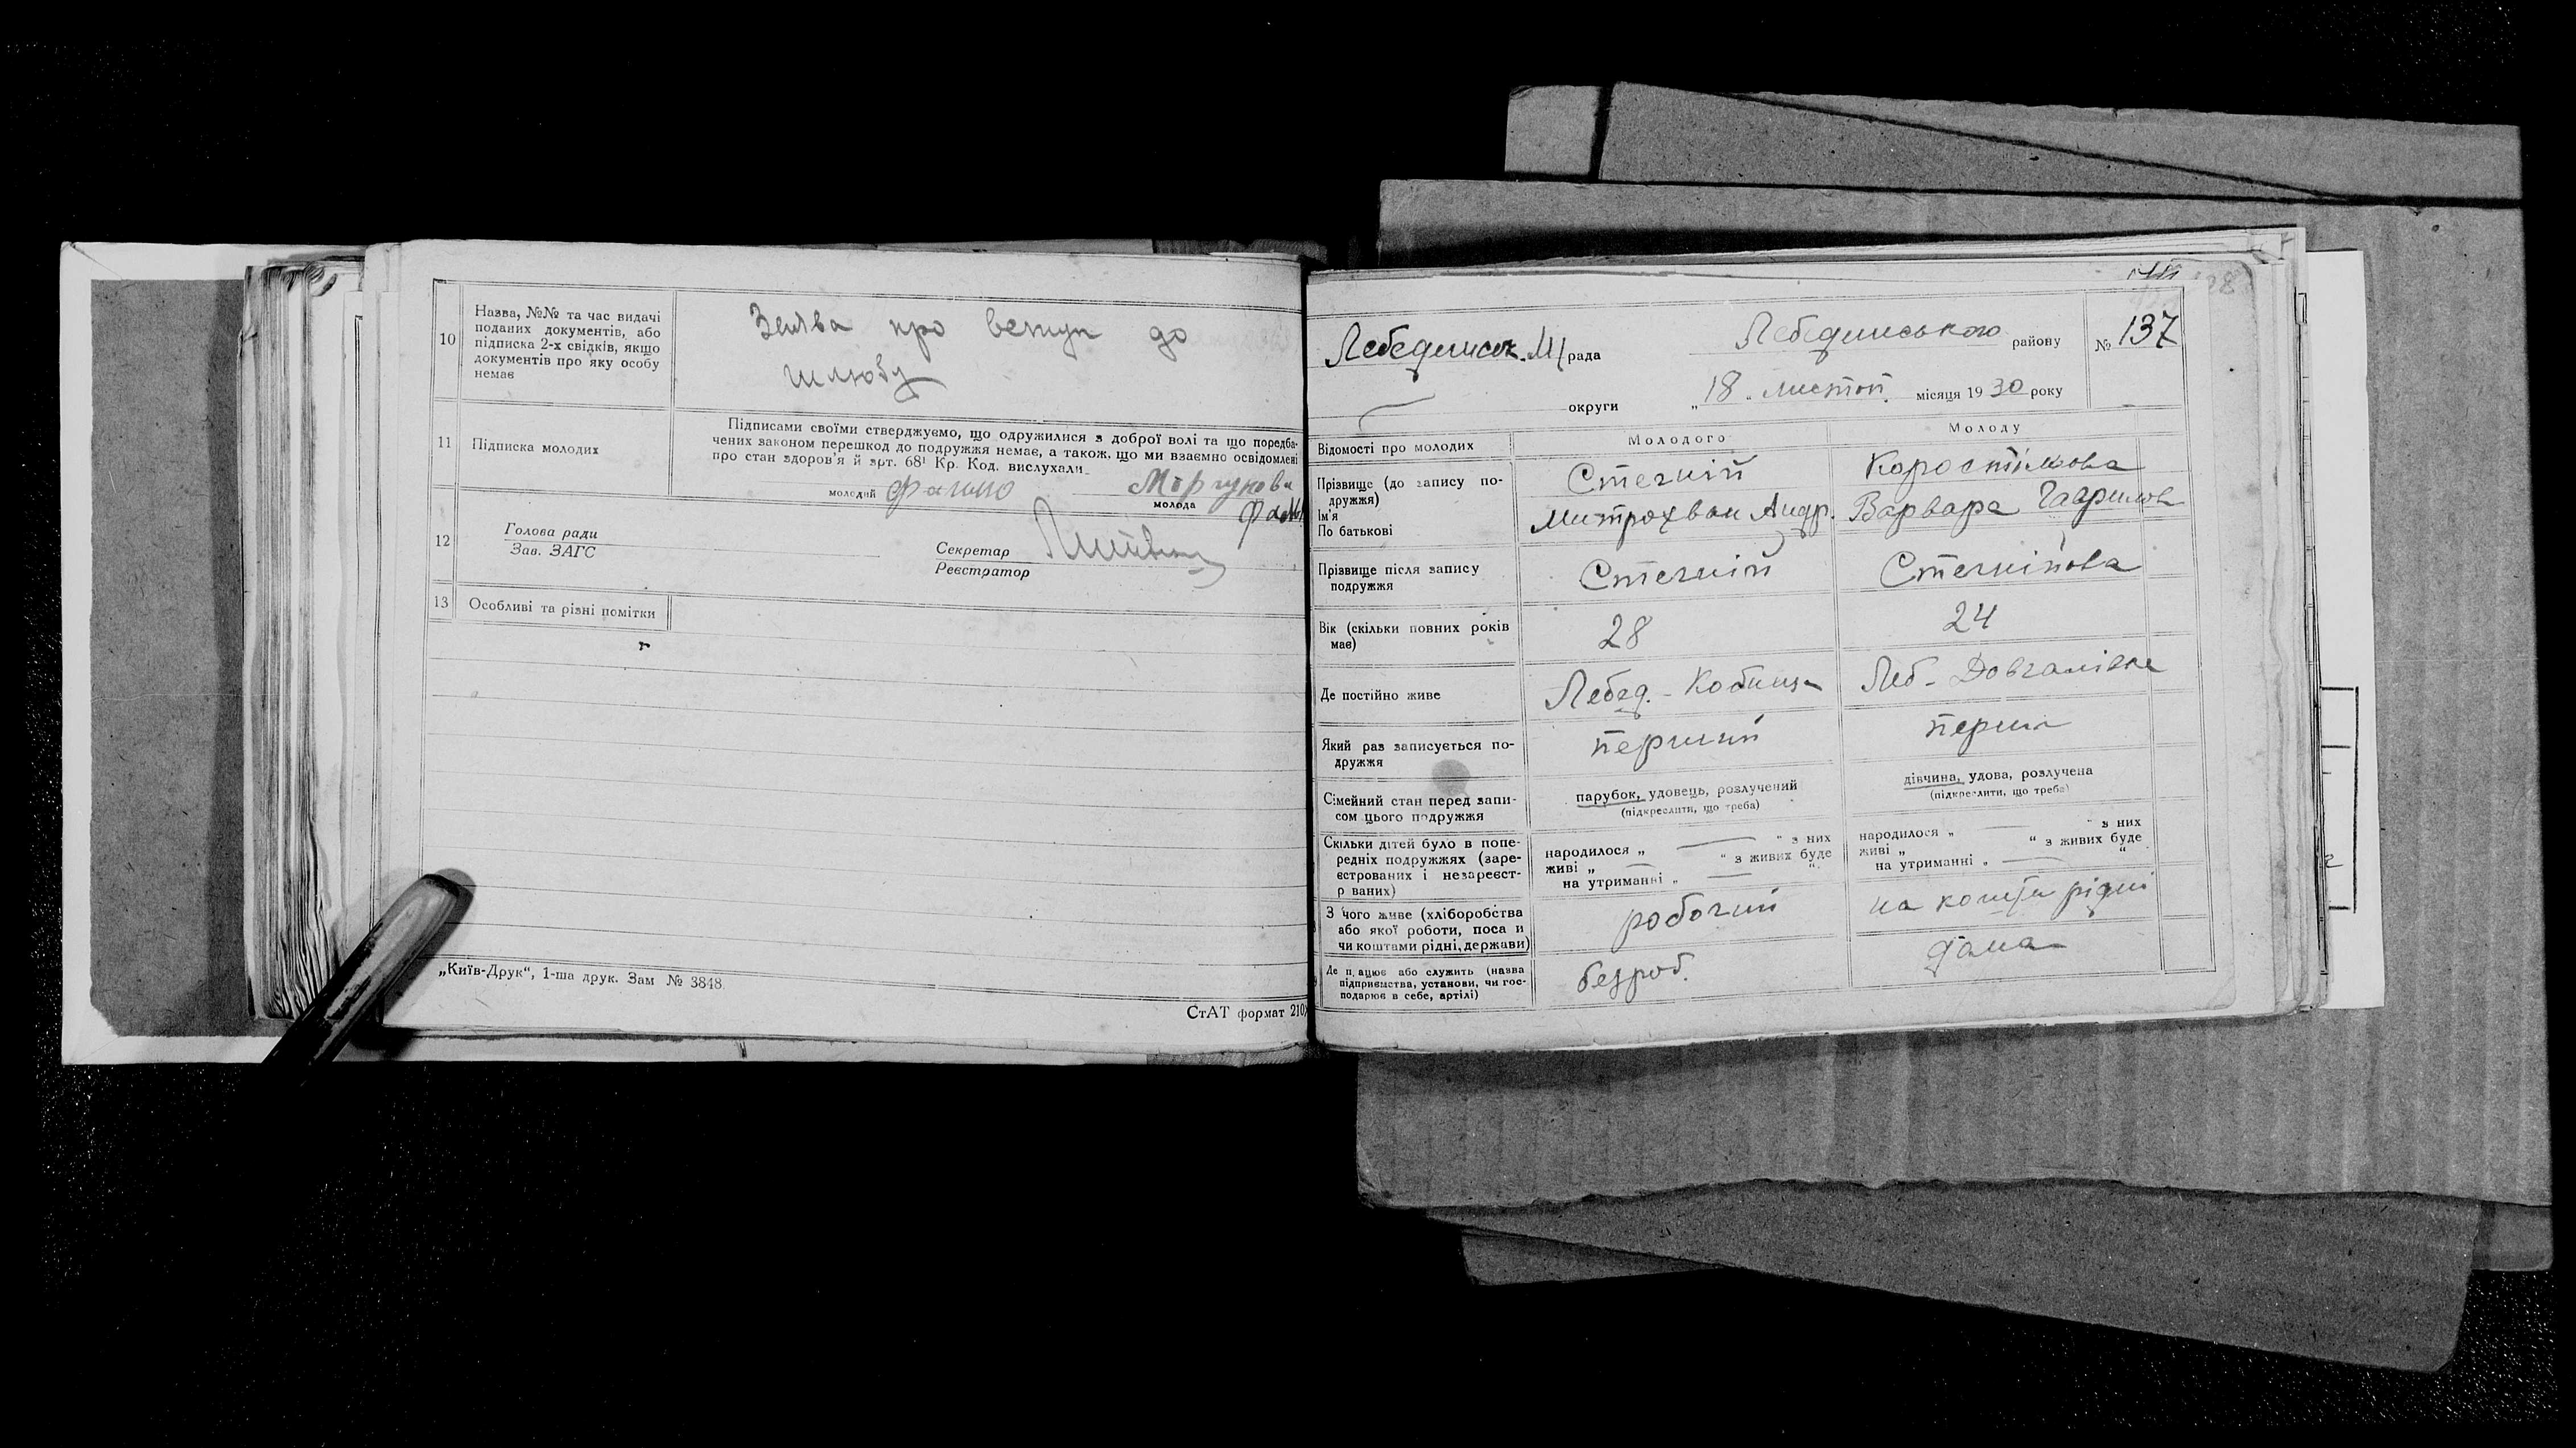 10
Назва, №№ та час видачі
поданих документів, або
підписка 2-х свідків, якщо
документів про яку особу
немає
Заява про вступ до
шлюбу
11
Підписка молодих
Підписами своїми стверджуємо, що одружилися з доброї волі та що поредба-
чених законом перешкод до подружжя немає, а також, що ми взаємно освідомлені
про стан здоров'я й арт. 68¹ Кр. Код. вислухали.
молодий
молода
12
Голова ради
Зав. ЗАГС
Секретар
Реєстратор
13
Особливі та різні помітки
„Київ-Друк“, 1-ша друк. Зам № 3848.
СтАТ формат 210
Лебединськ. М/рада
Лебединського району
№ 137
округи
„18„ листоп. місяця 1930 року
Відомості про молодих
Молодого
Молоду
Прізвище (до запису по-
дружжя)
Ім'я
По батькові
Стегній
Митрохван Андр.
Варвара Гаврилов
Прізвище після запису
подружжя
Стегній
Стегнійова
Вік (скільки повних років
має)
28
24
Де постійно живе
Лебед. - Кобижча
Леб - Довгалівка
Який раз записується по-
дружжя
перший
перший
Сімейний стан перед запи-
сом цього подружжя
парубок, удовець, розлучений
(підкреслити, що треба)
дівчина, удова, розлучена
(підкреслити, що треба)
Скільки дітей було в попе-
редніх подружжях (заре-
єстрованих і незареєст-
р ваних)
народилося „ “ з них
живі „ “ з живих буде
на утриманні „ “.
народилося „ “ з них
живі „ “ з живих буде
на утриманні „ “
З чого живе (хліборобства
або якої роботи, поса и
чи коштами рідні, держави)
робочий
на кошти рідні
Де п, ацює або служить (назва
підприємства, установи, чи гос-
подарює в себе, артілі)
безроб.
дома